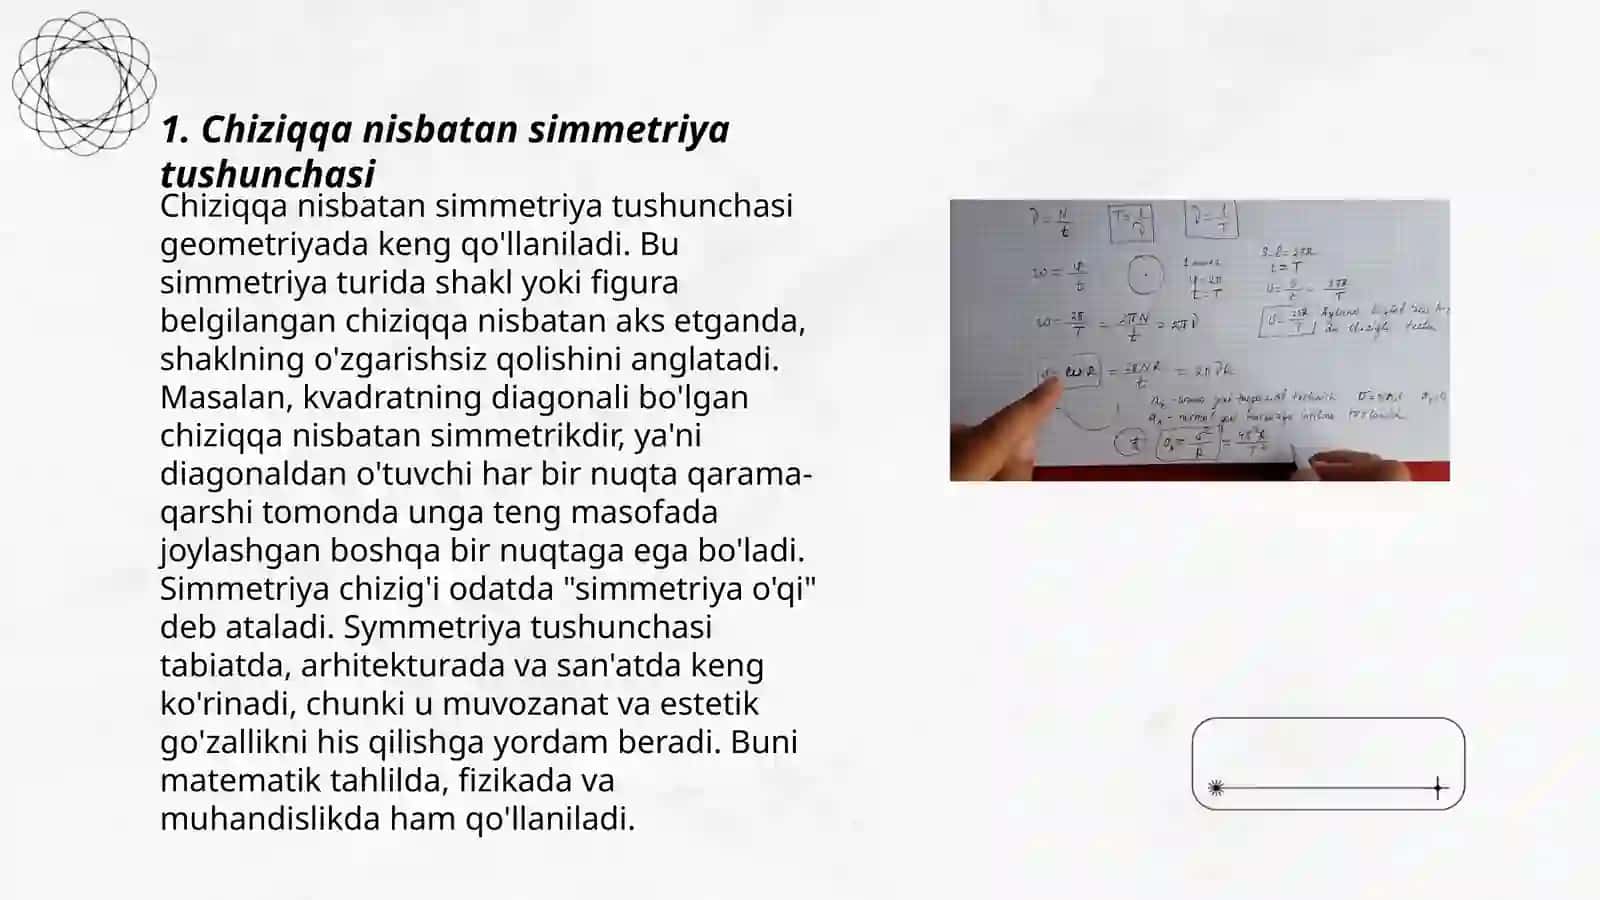 1. Chiziqqa nisbatan simmetriya
tushunchasi
Chiziqqa nisbatan simmetriya tushunchasi
geometriyada keng qo'llaniladi. Bu
simmetriya turida shakl yoki figura
belgilangan chiziqqa nisbatan aks etganda,
shaklning o'zgarishsiz qolishini anglatadi.
Masalan, kvadratning diagonali bo'lgan
chiziqqa nisbatan simmetrikdir, ya'ni
diagonaldan o'tuvchi har bir nuqta qarama-
qarshi tomonda unga teng masofada
joylashgan boshqa bir nuqtaga ega bo'ladi.
Simmetriya chizig'i odatda "simmetriya o'qi"
deb ataladi. Symmetriya tushunchasi
tabiatda, arhitekturada va san'atda keng
ko'rinadi, chunki u muvozanat va estetik
go'zallikni his qilishga yordam beradi. Buni
matematik tahlilda, fizikada va
muhandislikda ham qo'llaniladi.